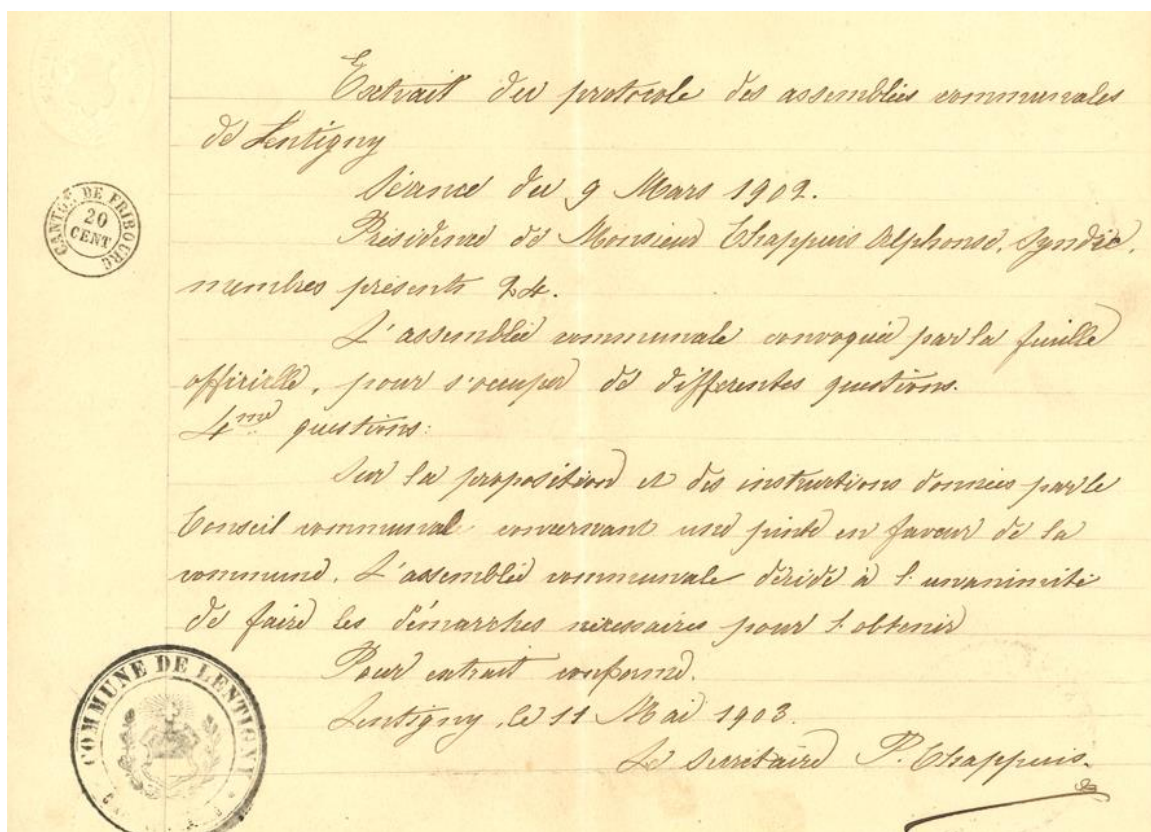 Extrait du protocole des assemblées communales
de Lentigny
Séance du 9 Mars 1902.
CANTON DE FRIBOURG
20
CENT
Présidence de Monsieur Chappuis Alphonse, Syndic,
membres présents 24.
L'assemblée communale convoquée par la feuille
officielle, pour s'occuper de différentes questions.
4me questions:
Sur la proposition et des instructions données par le
Conseil communal concernant une pinte en faveur de la
commune. L'assemblée communale décide à l'unanimité
de faire les démarches nécessaires pour l'obtenir
Pour extrait conforme.
Lentigny, le 11 Mai 1903.
Le Secrétaire P. Chappuis.
COMMUNE DE LENTIGNY